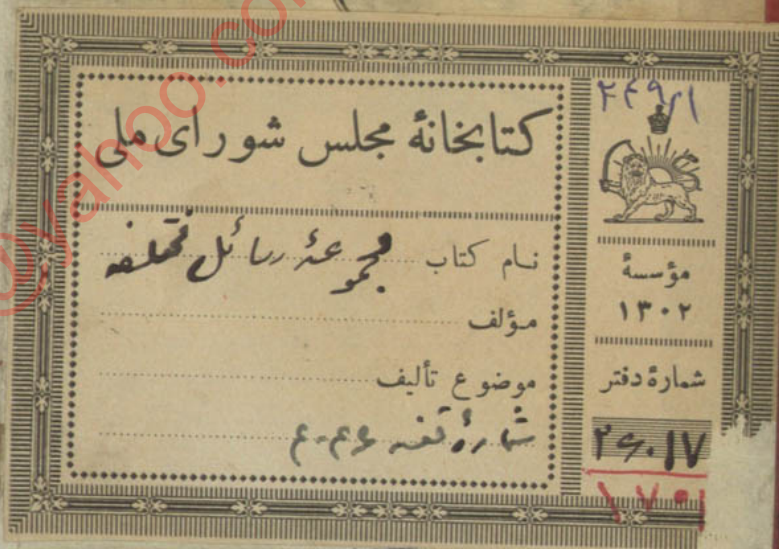 کتابخانهٔ مجلس شورای ملی
نام کتاب مجموعهٔ رسائل مختلفه
مؤلف
موضوع تألیف
شمارهٔ قفسه
مؤسسهٔ
۱۳۰۲
شمارهٔ دفتر
@yahoo.co